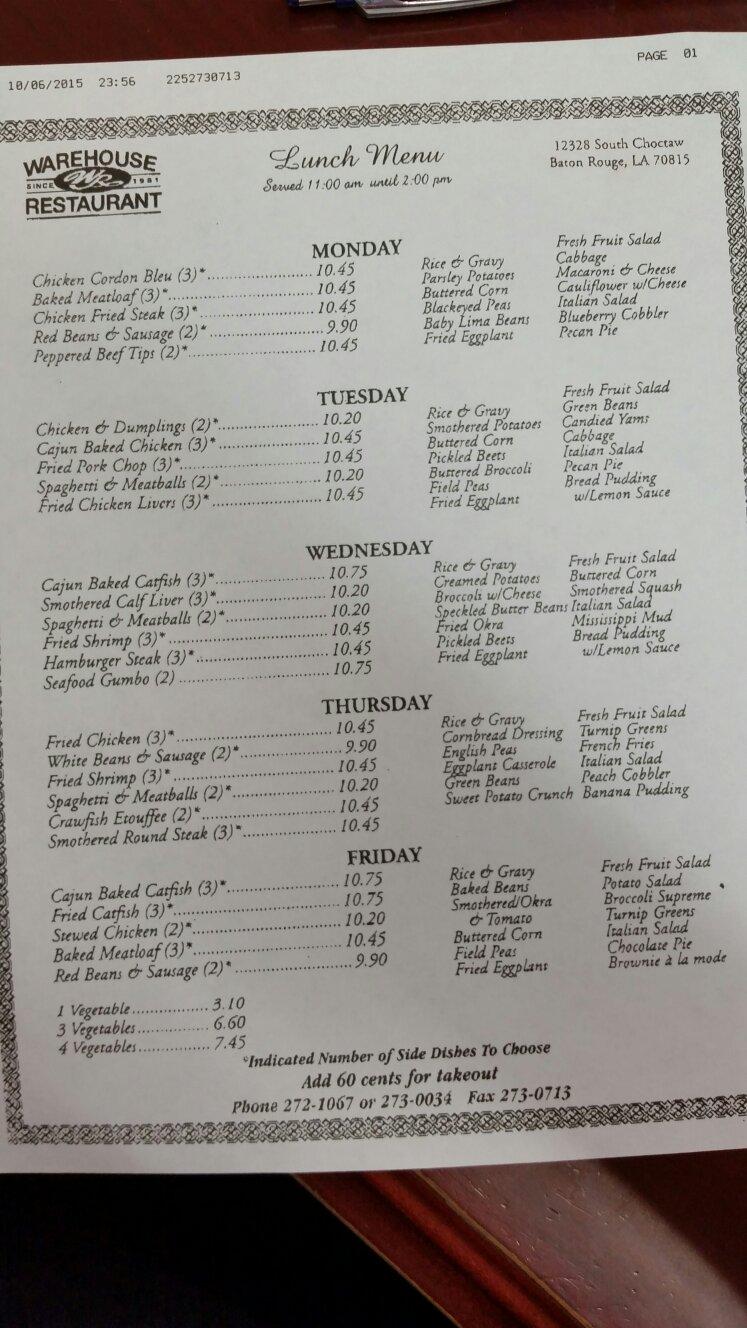 10/06/2015 23:56 2252730713 PAGE 01
WAREHOUSE
SINCE WR 1981
RESTAURANT
Lunch Menu
Served 11:00 am until 2:00 pm
12328 South Choctaw
Baton Rouge, LA 70815
MONDAY
Chicken Cordon Bleu (3)*........................10.45
Baked Meatloaf (3)*........................10.45
Chicken Fried Steak (3)*........................10.45
Red Beans & Sausage (2)*........................9.90
Peppered Beef Tips (2)*........................10.45
Rice & Gravy
Parsley Potatoes
Buttered Corn
Blackeyed Peas
Baby Lima Beans
Fried Eggplant
Fresh Fruit Salad
Cabbage
Macaroni & Cheese
Cauliflower w/Cheese
Italian Salad
Blueberry Cobbler
Pecan Pie
TUESDAY
Chicken & Dumplings (2)*........................10.20
Cajun Baked Chicken (3)*........................10.45
Fried Pork Chop (3)*........................10.45
Spaghetti & Meatballs (2)*........................10.20
Fried Chicken Livers (3)*........................10.45
Rice & Gravy
Smothered Potatoes
Buttered Corn
Pickled Beets
Buttered Broccoli
Field Peas
Fried Eggplant
Fresh Fruit Salad
Green Beans
Candied Yams
Cabbage
Italian Salad
Pecan Pie
Bread Pudding
w/Lemon Sauce
WEDNESDAY
Cajun Baked Catfish (3)*........................10.75
Smothered Calf Liver (3)*........................10.20
Spaghetti & Meatballs (2)*........................10.20
Fried Shrimp (3)*........................10.45
Hamburger Steak (3)*........................10.45
Seafood Gumbo (2)........................10.75
Rice & Gravy
Creamed Potatoes
Broccoli w/Cheese
Speckled Butter Beans
Fried Okra
Pickled Beets
Fried Eggplant
Fresh Fruit Salad
Buttered Corn
Smothered Squash
Italian Salad
Mississippi Mud
Bread Pudding
w/Lemon Sauce
THURSDAY
Fried Chicken (3)*........................10.45
White Beans & Sausage (2)*........................9.90
Fried Shrimp (3)*........................10.45
Spaghetti & Meatballs (2)*........................10.20
Crawfish Etouffee (2)*........................10.45
Smothered Round Steak (3)*........................10.45
Rice & Gravy
Cornbread Dressing
English Peas
Eggplant Casserole
Green Beans
Sweet Potato Crunch
Fresh Fruit Salad
Turnip Greens
French Fries
Italian Salad
Peach Cobbler
Banana Pudding
FRIDAY
Cajun Baked Catfish (3)*........................10.75
Fried Catfish (3)*........................10.75
Stewed Chicken (2)*........................10.20
Baked Meatloaf (3)*........................10.45
Red Beans & Sausage (2)*........................9.90
Rice & Gravy
Baked Beans
Smothered/Okra
& Tomato
Buttered Corn
Field Peas
Fried Eggplant
Fresh Fruit Salad
Potato Salad
Broccoli Supreme
Turnip Greens
Italian Salad
Chocolate Pie
Brownie à la mode
1 Vegetable.............3.10
3 Vegetables............6.60
4 Vegetables............7.45
*Indicated Number of Side Dishes To Choose
Add 60 cents for takeout
Phone 272-1067 or 273-0034 Fax 273-0713